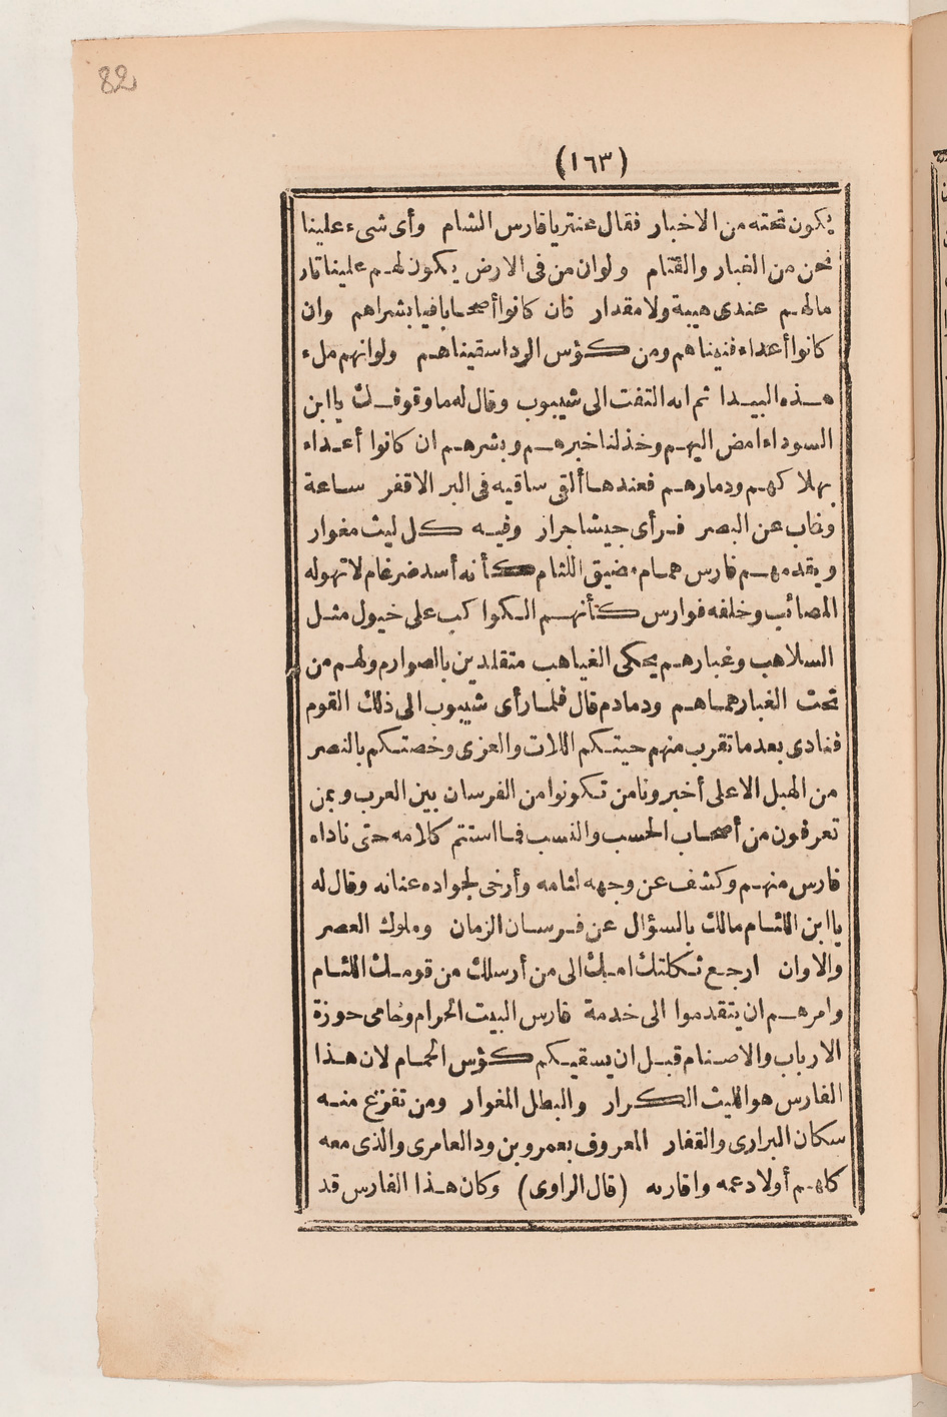 82
(١٦٣)
يكون تحته من الاخبار فقال عنتر يا فارس الشام وأى شىء علينا
نحن من الغبار والقتام ولو ان من فى الارض يكون لهم علينا ثار
مالهم عندى هيبة ولا مقدار فان كانوا أصحابا فيا بشراهم وان
كانوا أعداء فنيناهم ومن كؤس الردا سقيناهم ولو انهم ملء
هذه البيدا ثم انه التفت الى شيبوب وقال له ما وقوفك يا ابن
السوداء امض اليهم وخذ لنا خبرهم وبشرهم ان كانوا أعداء
بهلاكهم ودمارهم فعندها ألقى ساقيه فى البر الاقفر ساعة
وغاب عن البصر فرأى جيشا جرار وفيه كل ليث مغوار
ويقدمهم فارس همام مضيق اللثام كأنه أسد ضرغام لا تهوله
المصائب وخلفه فوارس كأنهم الكواكب على خيول مثل
السلاهب وغبارهم يحكى الغياهب متقلدين بالصوارم ولهم من
تحت الغبار هماهم ودمادم قال فلما رأى شيبوب الى ذلك القوم
فنادى بعد ما تقرب منهم حيتكم اللات والعزى وخصتكم بالنصر
من الهبل الاعلى أخبرونا من تكونوا من الفرسان بين العرب وبمن
تعرفون من أصحاب الحسب والنسب فما استتم كلامه حتى ناداه
فارس منهم وكشف عن وجهه لثامه وأرخى لجواده عنانه وقال له
يا ابن اللثام مالك بالسؤال عن فرسان الزمان وملوك العصر
والاوان ارجع ثكلتك امك الى من أرسلك من قومك اللثام
وامرهم ان يتقدموا الى خدمة فارس البيت الحرام وحامى حوزة
الارباب والاصنام قبل ان يسقيكم كؤس الحمام لان هذا
الفارس هو الليث الكرار والبطل المغوار ومن تفزع منه
سكان البرارى والقفار المعروف بعمرو بن ود العامرى والذى معه
كلهم أولاد عمه واقاربه (قال الراوى) وكان هذا الفارس قد